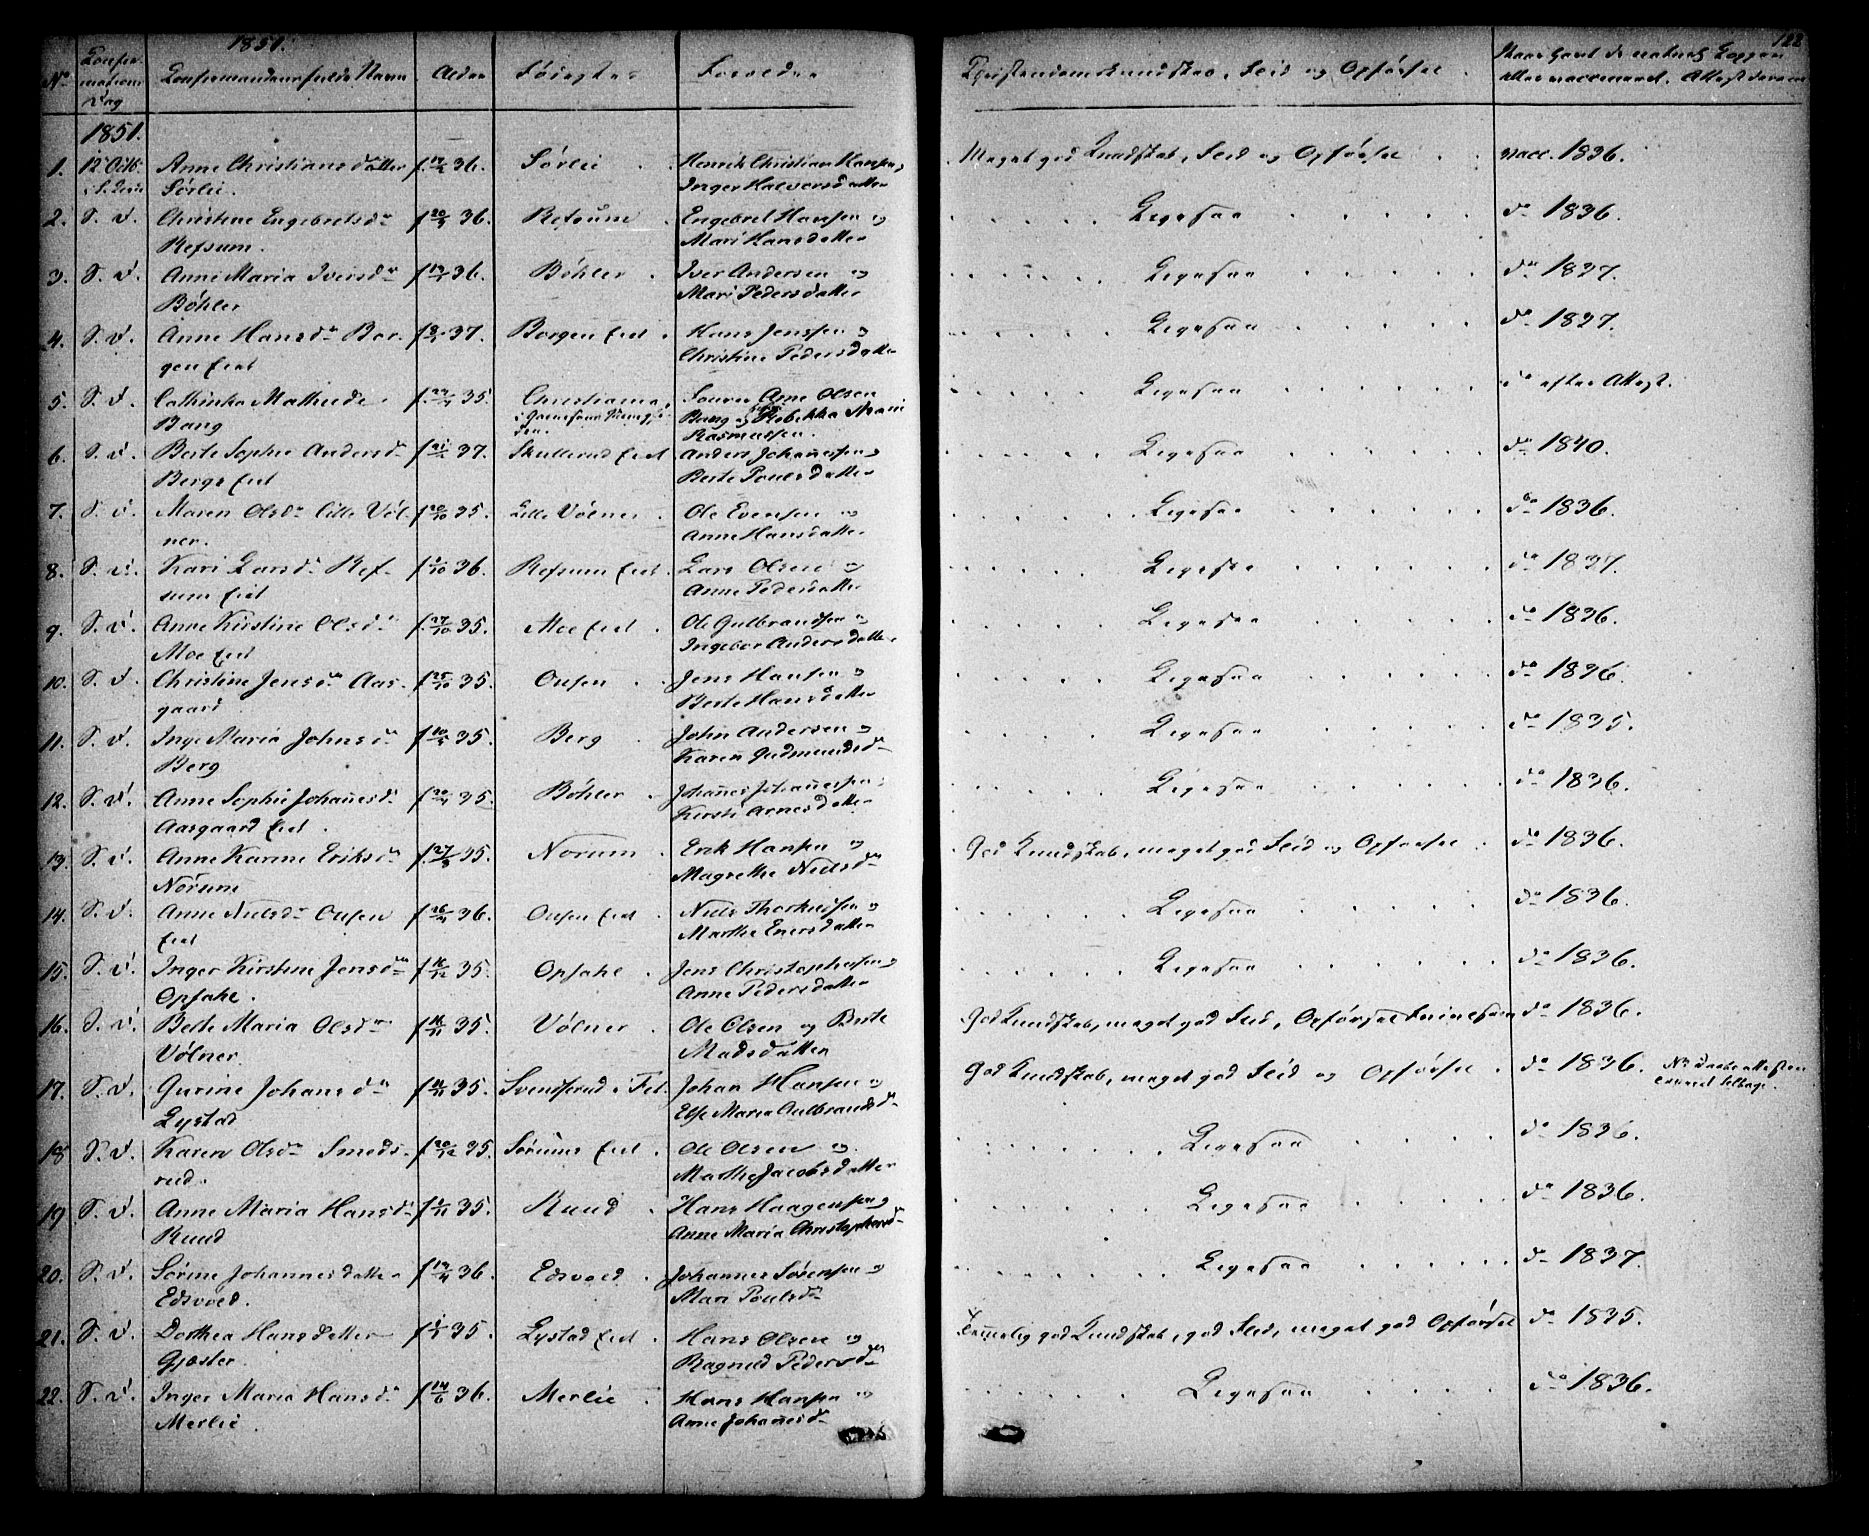 1851.
122
No Confirmations Dag
Confirmandens fulde Navn. Alder Fødested Forældre
Christendomskundskab, Flid og Opførsel.
1851.
1. 12 Octb. Anne Christiansdatter f. 36. Sørlie Henrik Christian Hansen
Sørlie. Inger Halvorsdatter
Meget god Kundskab, Flid og Opførsel vacc. 1836.
2. S. D. Christine Engebretsdr f 20/3 36. Refsum Engebret Hansen og
Refsum. Mari Hansdatter
Ligesaa do 1836.
3. S. D. Anne Maria Iversdr f 36. Bøhler Iver Andersen og
Bøhler Mari Pedersdatter
Ligesaa do 1837.
4. S. D. Anne Hansdr Bor- f 37. Borgen Eiet Hans Jenssen og
gen Eiet Christine Pedersdatter
Ligesaa do 1837.
5. S. D. Cathinka Mathilde f 35. Christiania
Bang Rebekka Marie
Rasmussen.
Ligesaa do efter Attest.
6. S. D. Berte Sophie Andersdr f 37. Skullerud Eiet Anders Johannessen og
Berge Eiet Berte Poulsdatter
Ligesaa do 1840.
7. S. D. Maren Olsdr Lille Vøl- f 20/10 35. Lille Vølner Ole Evensen og
ner. Anne Hansdatter
Ligesaa do 1836.
8. S. D. Kari Larsdr Ref- f 36. Refsum Eiet Lars Olsen og
sum Eiet Anne Pedersdatter
Ligesaa do 1837.
9. S. D. Anne Kirstine Olsdr f 27/10 35. Moe Eiet Ole Gulbrandsen og
Moe Eiet Ingebor Andersdatter
Ligesaa do 1836.
10. S. D. Christine Jensdr Aas- f 25/10 35. Ousen Jens Hansen og
gaard Berte Hansdatter
Ligesaa do 1836.
11. S. D. Inge Maria Johnsdr f 35. Berg John Andersen og
Berg Karen Gudmundsdr
Ligesaa do 1835.
12. S. D. Anne Sophie Johañesdr f 35. Bøhler Johañes Johañessen
Aasgaard Eiet. Kirsti Arnesdatter
Ligesaa do 1836.
13. S. D. Anne Karine Eriksdr f 27/3 35. Norum Erik Hansen og
Norum Magrethe Nielsdr
God Kundskab, meget god Flid og Opførsel do 1836.
14. S. D. Anne Nielsdr Ousen f 36. Ousen Eiet Niels Thorkildsen og
Eiet Marthe Enersdatter
Ligesaa do 1836.
15. S. D. Inger Kirstine Jensdr f 16/12 35. Opsahl Jens Christophersen og
Opsahl. Anne Pedersdatter
Ligesaa do 1836.
16. S. D. Berte Maria Olsdr f 16/11 35. Vølner Ole Olsen og Berte
Vølner Madsdatter
God Kundskab, meget god Flid, Opførsel do 1836.
17. S. D. Gurine Johansdr f 35. Svendsrud i Fet Johan Hansen og
Lystad Else Maria Gulbrandsdr
God Kundskab, meget god Flid og Opførsel do 1836.
18 S. D. Karen Olsdr Smeds- f 20/12 35. Sørums Eiet Ole Olsen og
rud. Marthe Jacobsdatter
Ligesaa do 1836.
19 S. D. Anne Maria Hansdr f 35. Ruud Hans Haagensen og
Ruud Anne Maria Christophersdr
Ligesaa do 1836.
20. S. D. Sørine Johannesdatter f 36. Edsvold Johannes Sørensen og
Edsvold. Mari Poulsdr
Ligesaa do 1837.
21. S. D. Dorthea Hansdatter f 35. Lystad Eiet Hans Olsen og
Gjøster. Ragnild Pedersdr
Temmelig god Kundskab, god Flid, meget god Opførsel do 1835.
22. S. D. Inger Maria Hansdr f 14/6 36. Merlie Hans Hansen og
Merlie Anne Johañesdr
Ligesaa do 1836.